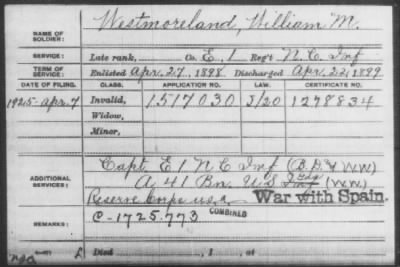 NAME OF SOLDIER: Westmoreland, William M.
SERVICE: Late rank, Co. E, 1 Reg't N.C. Inf
TERM OF SERVICE: Enlisted Apr. 27, 1898. Discharged Apr. 22, 1899
DATE OF FILING. CLASS. APPLICATION NO. LAW. CERTIFICATE NO.
1925-Apr. 7 Invalid, 1517030 J/20 1278834
Widow,
Minor,
ADDITIONAL SERVICES: Capt. E 1 N C Inf (B.D. & W.W.)
A, 41 Bn. U.S. Gds (W.W.)
Reserve Corps U.S.A. War with Spain.
REMARKS: C-1725.773 COMBINED
Died , 1 , at